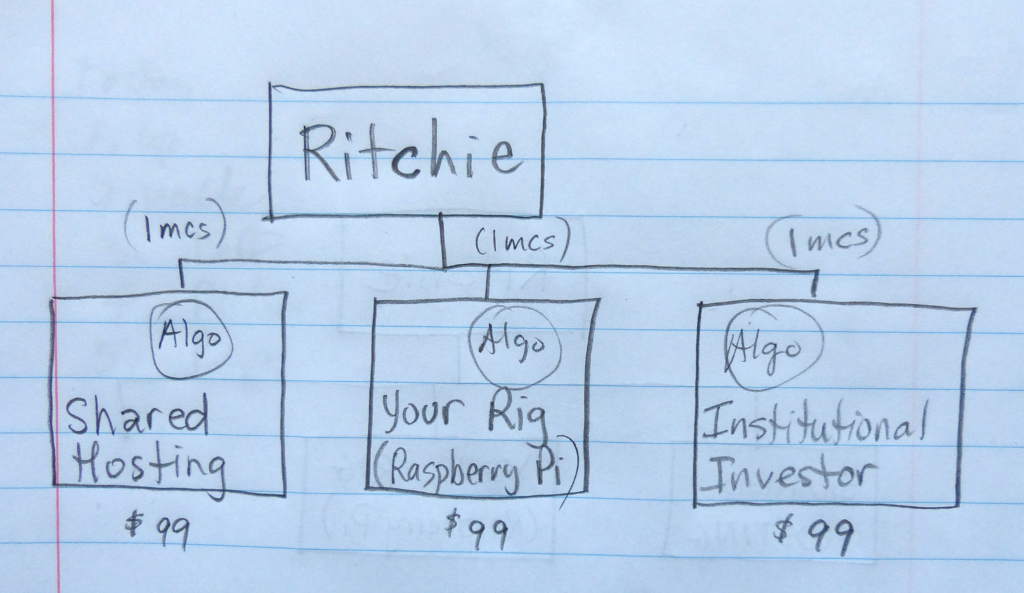 Ritchie
(1mcs)
(1mcs)
(1mcs)
Algo
Shared
Hosting
$99
Algo
Your Rig
(Raspberry Pi)
$99
Algo
Institutional
Investor
$99